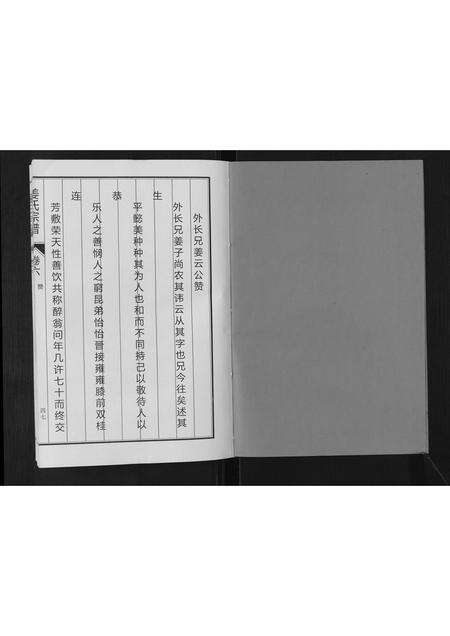 外长兄姜云公赞
外长兄姜子尚农其讳云从其字也兄今往矣述其
生
平懿美种种其为人也和而不同持己以敬待人以
恭
乐人之善悯人之窮昆弟怡怡晉接雍雍膝前双桂
连
芳敷荣天性善饮共称醉翁问年几许七十而终交
姜氏宗谱
卷六
赞
四七